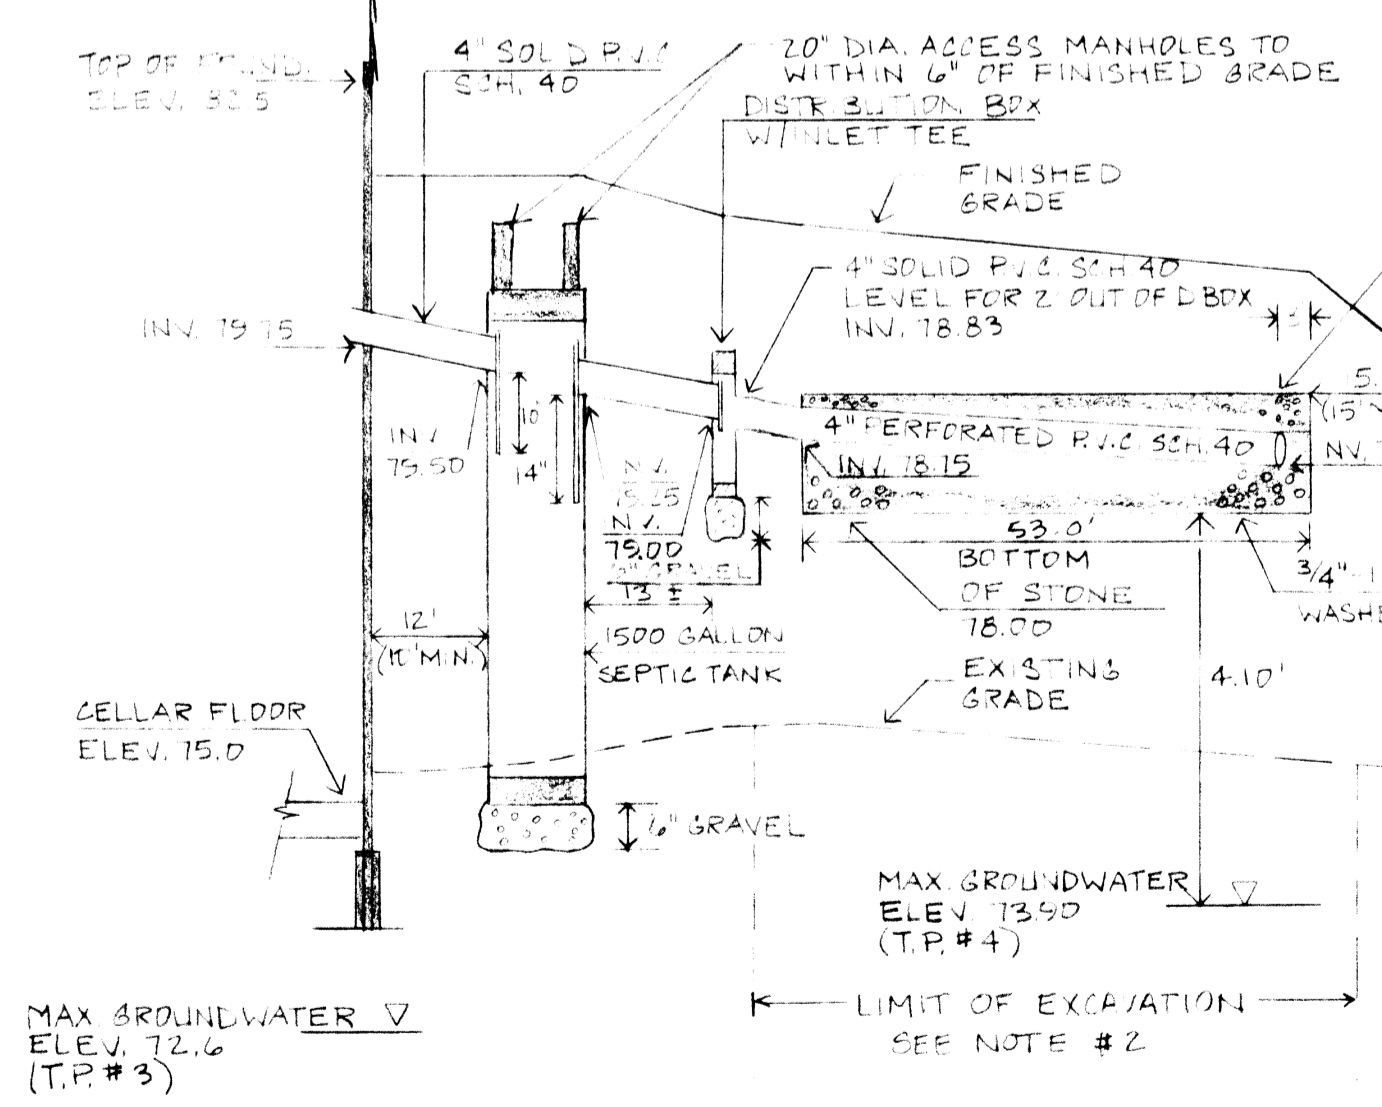 TOP OF FOUND.
ELEV. 82.5
4" SOLID P.V.C
SCH. 40
20" DIA. ACCESS MANHOLES TO
WITHIN 6" OF FINISHED GRADE
DISTRIBUTION BOX
W/INLET TEE
FINISHED
GRADE
4" SOLID P.V.C. SCH 40
LEVEL FOR 2' OUT OF D BOX
INV. 78.83
INV. 79.75
INV
79.50
10"
14"
INV.
INV.
79.00
6" GRAVEL
13' ±
4" PERFORATED P.V.C. SCH. 40
INV. 78.75
5.
(15'
NV.
53.0'
BOTTOM
OF STONE
78.00
3/4"-1
WASHE
12'
(10' MIN.)
1500 GALLON
SEPTIC TANK
EXISTING
GRADE
4.10'
CELLAR FLOOR
ELEV. 75.0
6" GRAVEL
MAX. GROUNDWATER
ELEV. 73.90
(T.P. #4)
LIMIT OF EXCAVATION
SEE NOTE #2
MAX. GROUNDWATER
ELEV. 72.6
(T.P. #3)